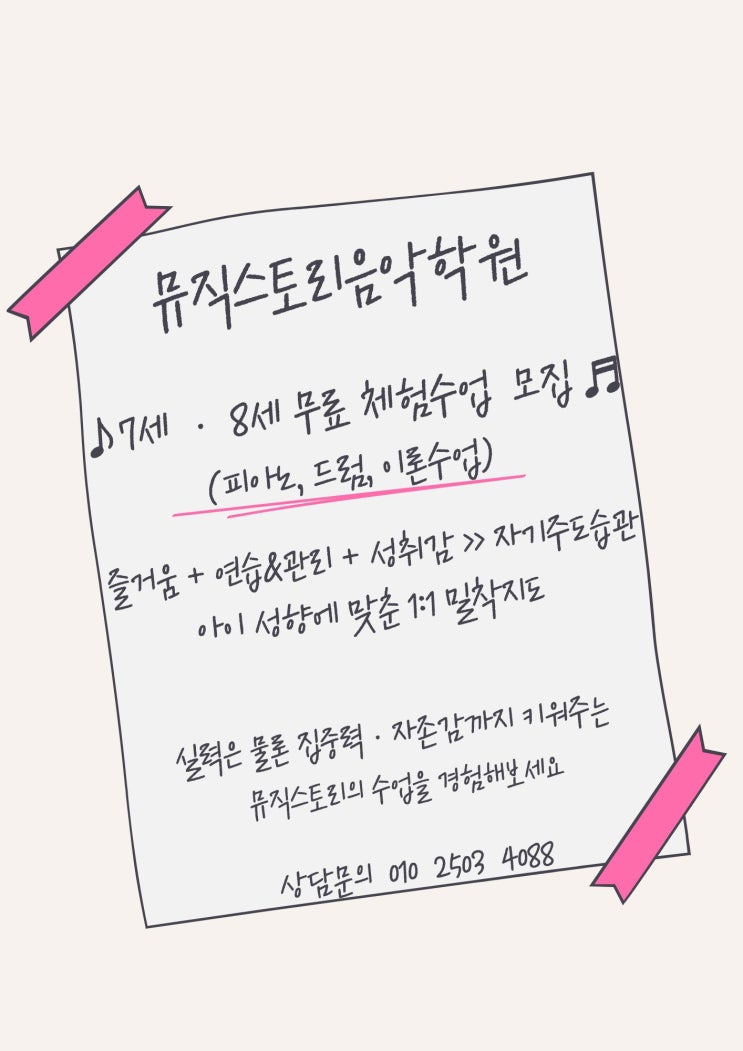 뮤직스토리음악학원
♪7세 · 8세 무료 체험수업 모집 ♬
(피아노, 드럼, 이론수업)
즐거움 + 연습&관리 + 성취감 >> 자기주도습관
아이 성향에 맞춘 1:1 밀착지도
실력은 물론 집중력 · 자존감까지 키워주는
뮤직스토리의 수업을 경험해보세요
상담문의 010 2503 4088